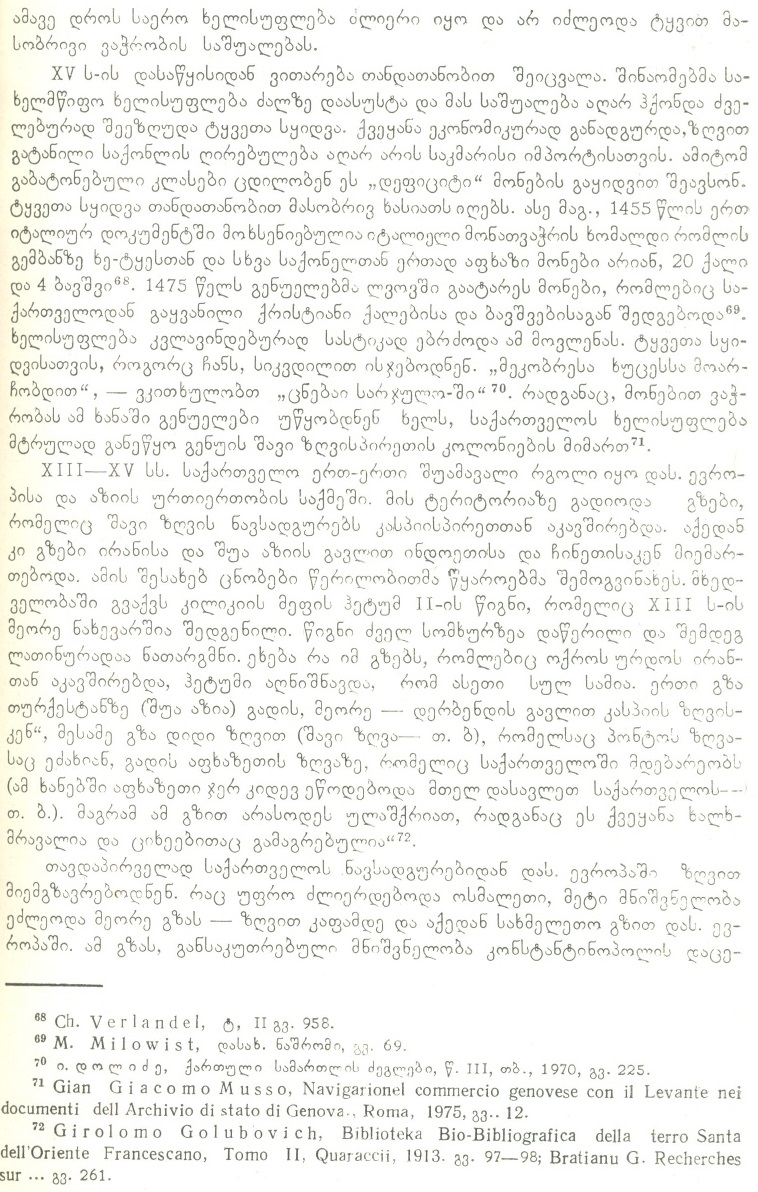 ამავე დროს საერო ხელისუფლება ძლიერი იყო და არ იძლეოდა ტყვით მა-
სობრივი ვაჭრობის საშუალებას.
XV ს-ის დასაწყისიდან ვითარება თანდათანობით შეიცვალა. შინაომებმა სა-
ხელმწიფო ხელისუფლება ძალზე დაასუსტა და მას საშუალება აღარ ჰქონდა ძვე-
ლებურად შეეზღუდა ტყვეთა სყიდვა. ქვეყანა ეკონომიკურად განადგურდა, ზღვით
გატანილი საქონლის ღირებულება აღარ არის საკმარისი იმპორტისათვის. ამიტომ
გაბატონებული კლასები ცდილობენ ეს „დეფიციტი“ მონების გაყიდვით შეავსონ.
ტყვეთა სყიდვა თანდათანობით მასობრივ ხასიათს იღებს. ასე მაგ., 1455 წლის ერთ
იტალიურ დოკუმენტში მოხსენიებულია იტალიელი მონათვაჭრის ხომალდი რომლის
გემბანზე ხე-ტყესთან და სხვა საქონელთან ერთად აფხაზი მონები არიან, 20 ქალი
და 4 ბავშვი⁶⁸. 1475 წელს გენუელებმა ლვოვში გაატარეს მონები, რომლებიც სა-
ქართველოდან გაყვანილი ქრისტიანი ქალებისა და ბავშვებისაგან შედგებოდა⁶⁹.
ხელისუფლება კვლავინდებურად სასტიკად ებრძოდა ამ მოვლენას. ტყვეთა სყი-
დვისათვის, როგორც ჩანს, სიკვდილით ისჯებოდნენ. „მეკობრესა ხუცესსა მოარ-
ჩობდით“, — ვკითხულობთ „ცნებაი სარჯულო-ში“ ⁷⁰. რადგანაც, მონებით ვაჭ-
რობას ამ ხანაში გენუელები უწყობდნენ ხელს, საქართველოს ხელისუფლება
მტრულად განეწყო გენუის შავი ზღვისპირეთის კოლონიების მიმართ⁷¹.
XIII—XV სს. საქართველო ერთ-ერთი შუამავალი რგოლი იყო დას. ევრო-
პისა და აზიის ურთიერთობის საქმეში. მის ტერიტორიაზე გადიოდა გზები,
რომელიც შავი ზღვის ნავსადგურებს კასპიისპირეთთან აკავშირებდა. აქედან
კი გზები ირანისა და შუა აზიის გავლით ინდოეთისა და ჩინეთისაკენ მიემარ-
თებოდა. ამის შესახებ ცნობები წერილობითმა წყაროებმა შემოგვინახეს. მხედ-
ველობაში გვაქვს კილიკიის მეფის ჰეტუმ II-ის წიგნი, რომელიც XIII ს-ის
მეორე ნახევარშია შედგენილი. წიგნი ძველ სომხურზეა დაწერილი და შემდეგ
ლათინურადაა ნათარგმნი. ეხება რა იმ გზებს, რომლებიც ოქროს ურდოს ირან-
თან აკავშირებდა, ჰეტუმი აღნიშნავდა, რომ ასეთი სულ სამია. ერთი გზა
თურქესტანზე (შუა აზია) გადის, მეორე — დერბენდის გავლით კასპიის ზღვის-
კენ“, მესამე გზა დიდი ზღვით (შავი ზღვა— თ. ბ), რომელსაც პონტოს ზღვა-
საც ეძახიან, გადის აფხაზეთის ზღვაზე, რომელიც საქართველოში მდებარეობს
(ამ ხანებში აფხაზეთი ჯერ კიდევ ეწოდებოდა მთელ დასავლეთ საქართველოს—
თ. ბ.). მაგრამ ამ გზით არასოდეს ულაშქრიათ, რადგანაც ეს ქვეყანა ხალხ-
მრავალია და ციხეებითაც გამაგრებულია“⁷².
თავდაპირველად საქართველოს ნავსადგურებიდან დას. ევროპაში ზღვით
მიემგზავრებოდნენ. რაც უფრო ძლიერდებოდა ოსმალეთი, მეტი მნიშვნელობა
ეძლეოდა მეორე გზას — ზღვით კაფამდე და აქედან სახმელეთო გზით დას. ევ-
როპაში. ამ გზას, განსაკუთრებული მნიშვნელობა კონსტანტინოპოლის დაცე-
⁶⁸ Ch. Verlandel, ტ, II გვ. 958.
⁶⁹ M. Milowist, დასახ. ნაშრომი, გვ. 69.
⁷⁰ ი. დოლიძე, ქართული სამართლის ძეგლები, წ. III, თბ., 1970, გვ. 225.
⁷¹ Gian Giacomo Musso, Navigarionel commercio genovese con il Levante nei
documenti dell Archivio di stato di Genova., Roma, 1975, გვ.. 12.
⁷² Girolomo Golubovich, Biblioteka Bio-Bibliografica della terro Santa
dell'Oriente Francescano, Tomo II, Quaraccii, 1913. გვ. 97—98; Bratianu G. Recherches
sur ... გვ. 261.